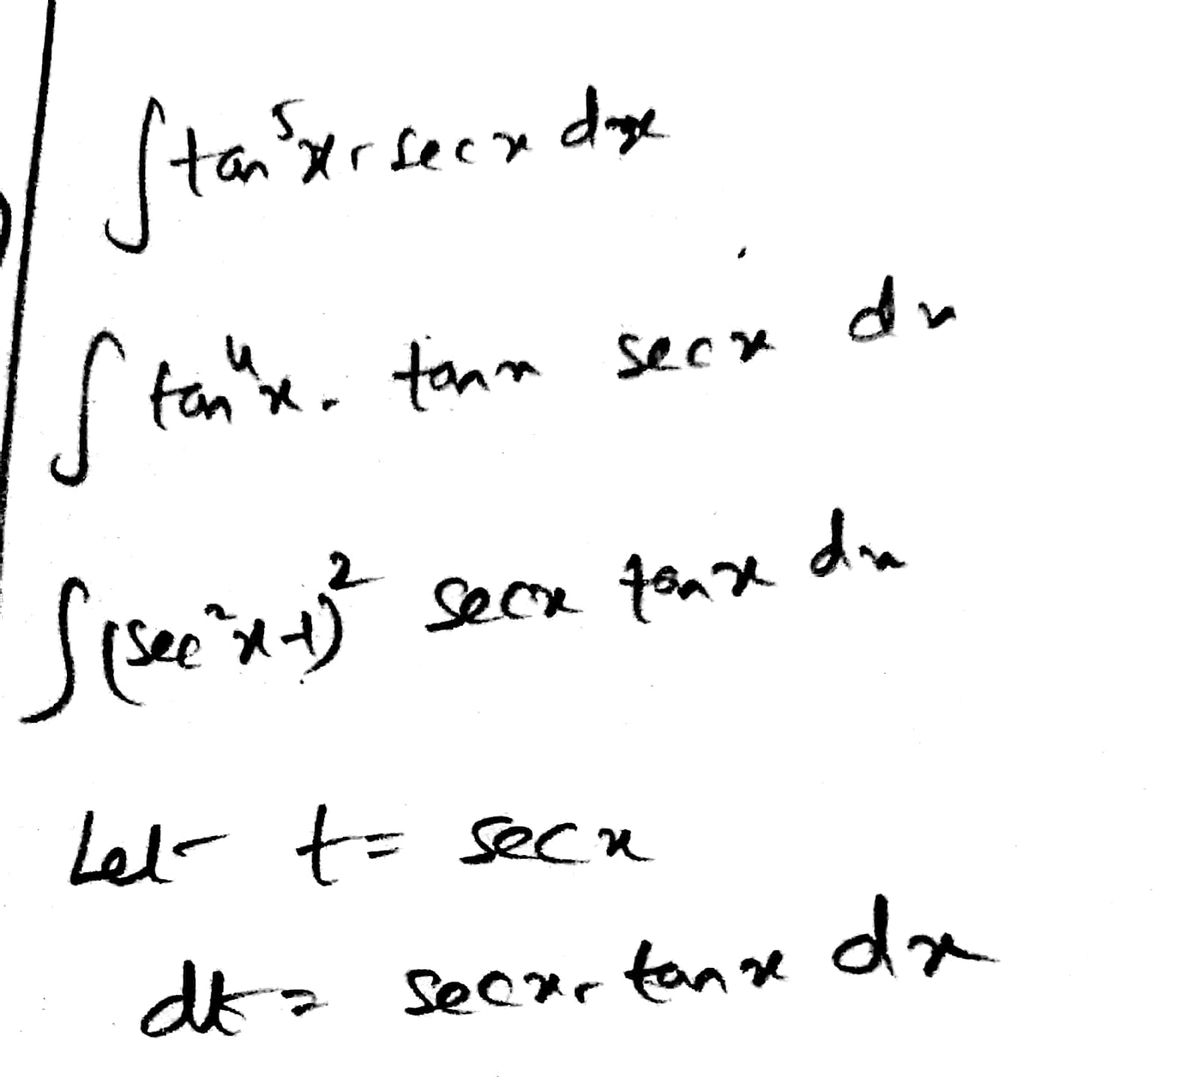 ∫tan⁵x · sec x dx
∫ tan⁴x · tan x sec x dx
∫(sec²x-1)² sec x tan x dx
Let t = sec x
dt = sec x · tan x dx